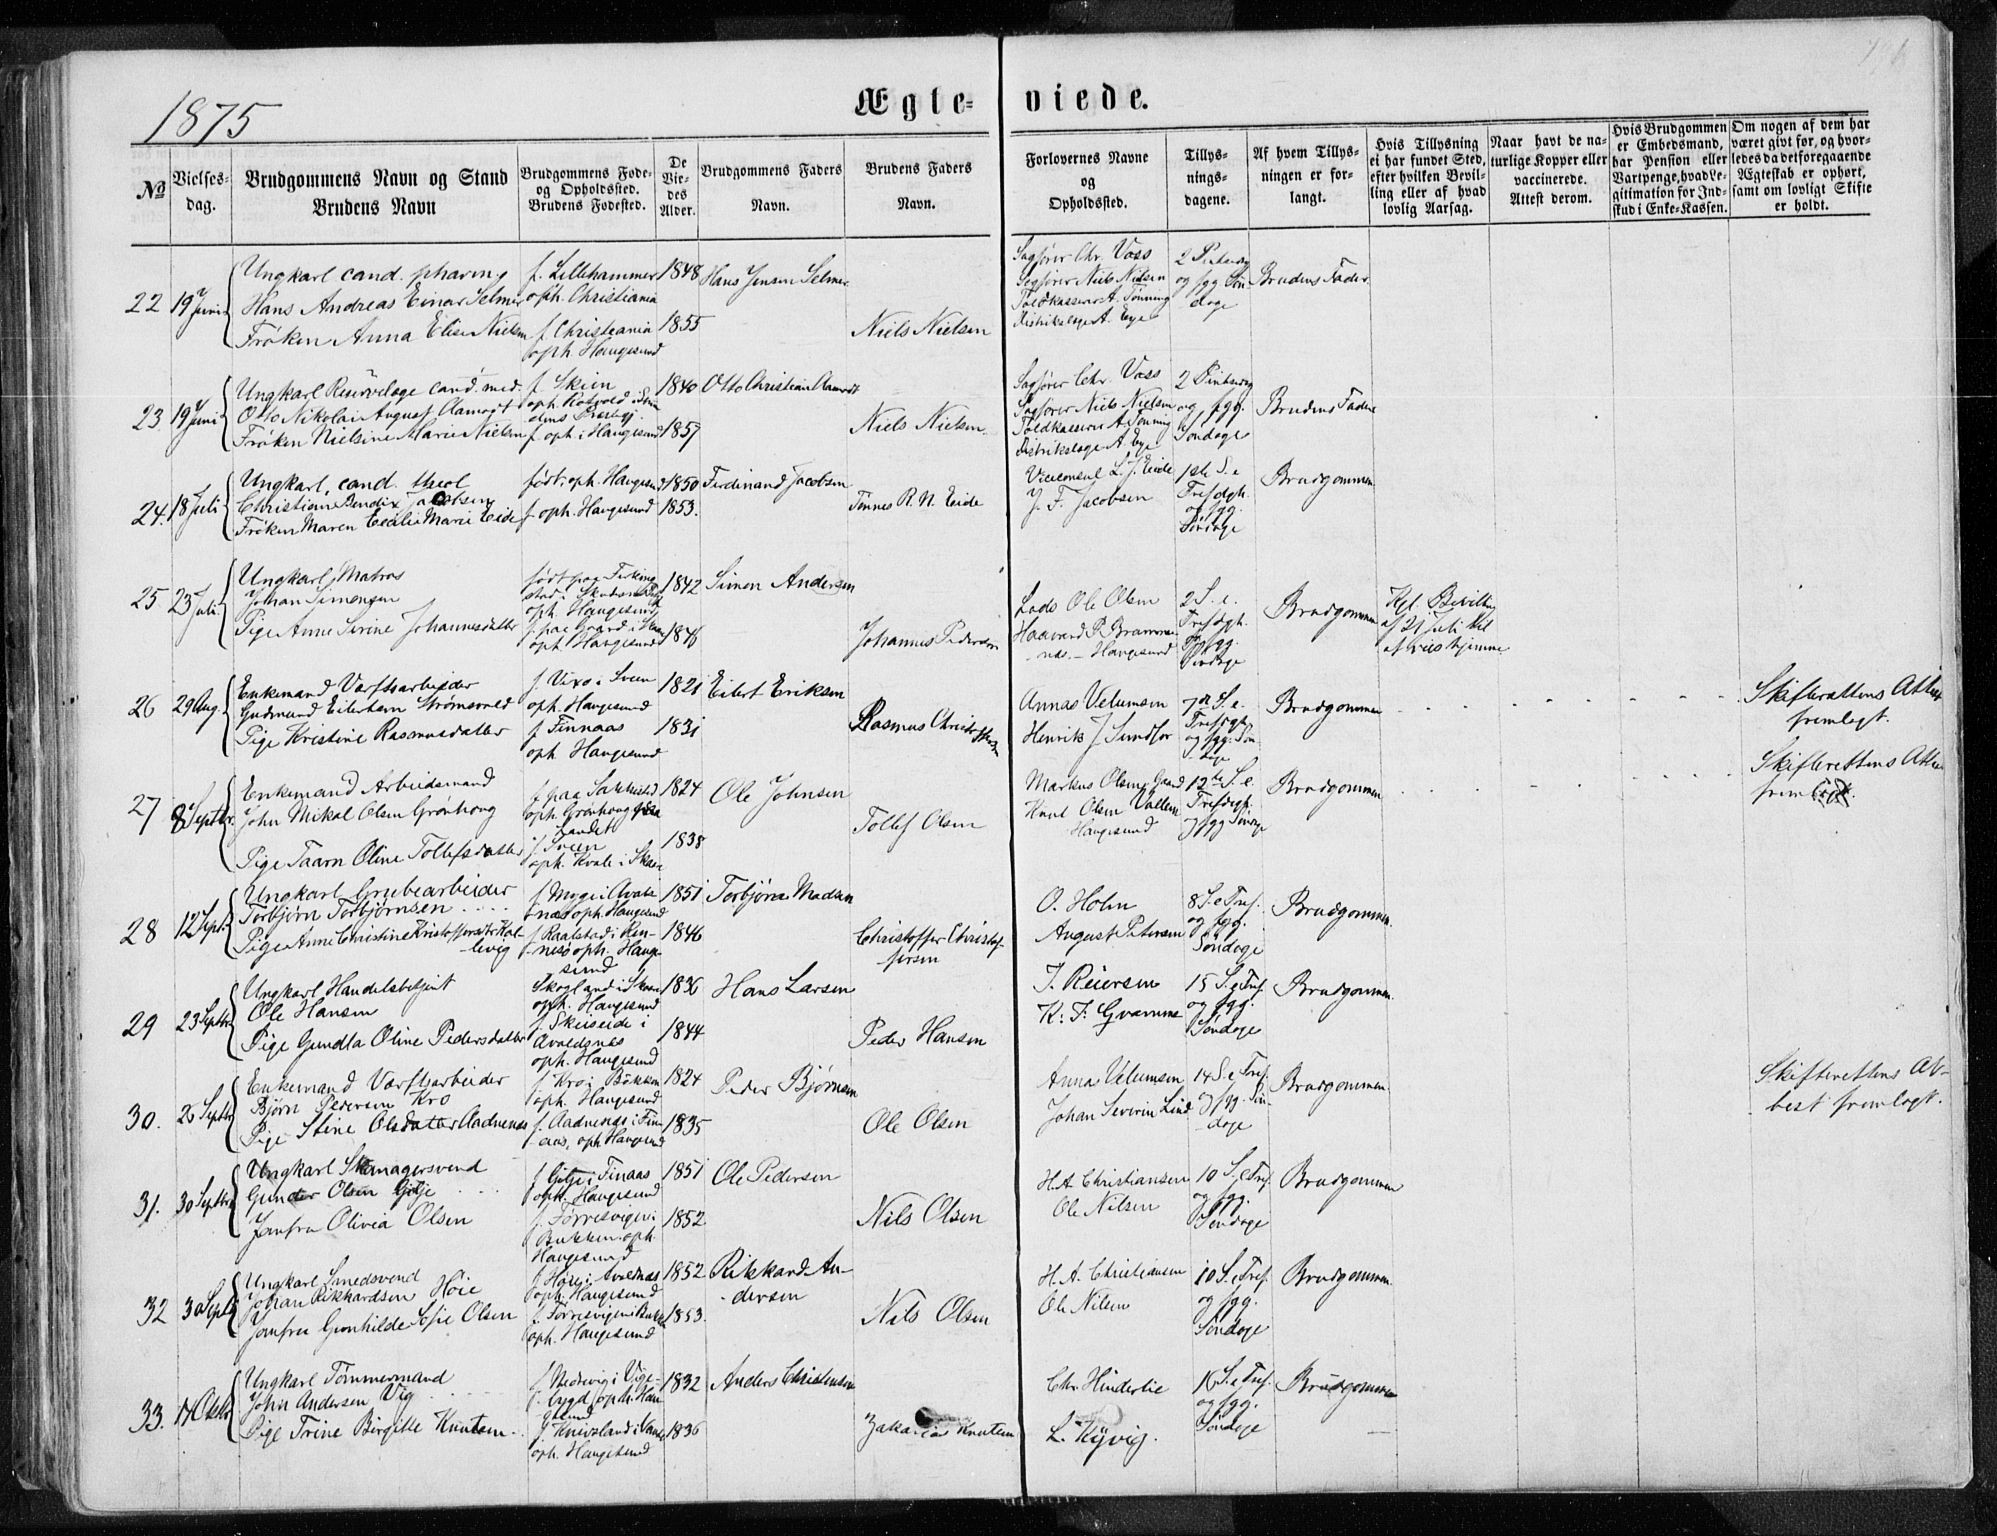 1875
Ægteviede.
No
Vielsesdag.
Brudgommens Navn og Stand
Brudens Navn
Brudgommens Føde- og Opholdssted.
Brudens Fødested.
De Viedes Alder.
Brudgommens Faders Navn.
Brudens Faders Navn.
Forlovernes Navne og Opholdssted.
Tillysningsdagene.
Af hvem Tillysningen er forlangt.
Hvis Tillysning ei har fundet Sted, efter hvilken Bevilling eller af hvad lovlig Aarsag.
Naar havt de naturlige Kopper eller vaccinerede. Attest derom.
Hvis Brudgommen er Embedsmand, har Pension eller Vartpenge, hvad Legitimation for Indskud i Enke-Kassen.
Om nogen af dem har været givt før, og hvorledes da det foregaaende Ægteskab er ophørt, samt om lovligt Skifte er holdt.
22 19 Juni
Ungkarl cand. pharm.
Hans Andreas Einar Selmer
Frøken Anna Elise Nielsen
f. Lillehammer
oph. Christiania
f. Christiania
oph. Haugesund
1848
1855
Hans Jensen Selmer
Niels Nielsen
Sagfører Chr. Voss
Sagfører Niels Nielsen
Toldkasserer A. Tønning
Distriktslæge A. Eye
2 Pintsedg
og fgg Søn
dage
Brudens Fader
23 19 Juni
Ungkarl Reservelæge cand. med.
Otto Nikolai August Aamodt
Frøken Nielsine Marie Nielsen
f. Skien
f. oph. i Haugesund
1840
1857
Otto Christian Aamodt
Niels Nielsen
Sagfører Chr. Voss
Sagfører Niels Nielsen
Toldkasserer A Tønning
Distriktslæge A. Eye
2 Pintsedg
og fgg.
Søndage
Brudens Fader
24. 18 Juli
Ungkarl, cand. theol
Christian Bendix Jacobsen
Frøken Maren Cecilie Marie Eide
født, oph. Haugesund
f. oph. Haugesund
1850
1853.
Ferdinand Jacobsen
Tønnes R. N. Eide
Viceconsul L. J. Eide
J. F. Jacobsen
1ste S. e
Trefdgh.
og fgg.
Søndage
Brudgommen
25 23 Juli
Ungkarl, Matros
Johan Simonsen
Pige Anne Serine Johannesdatter
født paa Ferking
stad i Skudesn
oph. Haugesund
f. paa Gaard i Skaare
oph. Haugesund
1842
1846
Simon Andersen
Johannes Pedersen
Lods Ole Olsen
Haavard P. Brommen
- nds. - Haugesund
2 S. e.
Trefdgh.
og fgg.
Søndage
Brudgommen
Kgl. Bevilling
af 21 Juli til
at vies hjemme
26 29 Aug.
Enkemand Værftsarbeider
Gudmund Eilertsen Strømsvold
Pige Kristine Rasmusdatter
f. Vixo i Sveen
oph. Haugesund
f. Finnaas
oph. Haugesund
1821
1831
Eilert Eriksen
Rasmus Christoffersen
Annas Velumsen
Henrik J. Sundfør
7de S. e.
Trefdgh
og fgg. Søn
dage
Brudgommen
Skifterettens Attest
fremlagt.
27 8 Septbr.
Enkemand Arbeidsmand
John Mikal Olsen Grønhoug
Pige Taarn Oline Tollefsdatter
oph. Grønhoug paa
Landet
f. Sveen
oph. Kvale i Skaare
1824
1838
Ole Johnsen
Tollef Olsen
Markus Olsen Gaard
Knud Olsen Vallem
Haugesund
12te S. e.
Trefdgh.
og fgg Søndage
Brudgommen
Skifterettens Attest
fremlagt.
28 12 Sept.
Ungkarl Grubearbeider
Torbjørn Torbjørnsen
Pige Anne Christine Kristoffersdtr Kal
levig
f. Myge i Avalds
næs oph. Haugesund
f. Raalstad i Ren-
nesø oph. Hauge
sund
1851
1846
Torbjørn Madsen
Christoffer Christof-
fersen
O. Holm
August Petersen
8 S. e Tref.
og fgg.
Søndage
Brudgommen.
29 23 Septbr
Ungkarl Handelsbetjent
Ole Hansen
Pige Gundla Oline Pedersdatter
Skogland i Skaare
oph. Haugesund
f. Skeiseide i
Avaldsnes
oph. Haugesund
1836
1844
Hans Larsen
Peder Hansen
J. Reiersen
K. F. Gramme
15 S. e Tref.
og fgg.
Søndage
Brudgommen.
30. 26 Septbr
Enkemand Værftsarbeider
Bjørn Pedersen Kro
Pige Stine Olsdatter Aadnenæs
f. Kro i Bokken
oph. Haugesund
f. Aadnenæs i Fin-
aas, oph Haugesund
1824
1835
Peder Bjørnsen
Ole Olsen
Anna Velumsen
Johan Severin Lind
14 S. e Tref.
og fgg. Søn-
dage
Brudgommen
Skifterettens At-
test fremlagt.
31. 30 Septbr
Ungkarl Skomagersvend
Gunder Olsen Gitje
Jomfru Olivia Olsen
f. Gitje i Finaas
oph. Haugesund
f. Førresvigen i
Bukken. oph.
Haugesund
1851
1852
Ole Pedersen
Nils Olsen
H. A. Christiansen
Ole Nilsen
10 S. e Tref.
og fgg.
Søndage
Brudgommen
32 30 Septbr
Ungkarl Smedsvend
Johan Rikhardsen Høie
Jomfru Gunhilde Sofie Olsen
f. Høie i Avaldnæs
oph. Haugesund
f. Førresvigen i Bukken
oph. Haugesund
1852
1853.
Rikkard An-
dersen
Nils Olsen
H. A. Christiansen
Ole Nilsen
10 S. e Tref.
og fgg.
Søndage
Brudgommen
33. 17 Oktbr
Ungkarl Tømmermand
John Andersen Vig
Pige Trine Birgitte Knutsen
f. Nedrevig i Vige-
bygd, oph. Hau
gesund
oph. Haugesund
1832
1836
Anders Christensen
Zakarias Knutsen
Chr. Hinderlie
L. Kyvig.
16 S. e Tref.
og fgg.
Søndage
Brudgommen